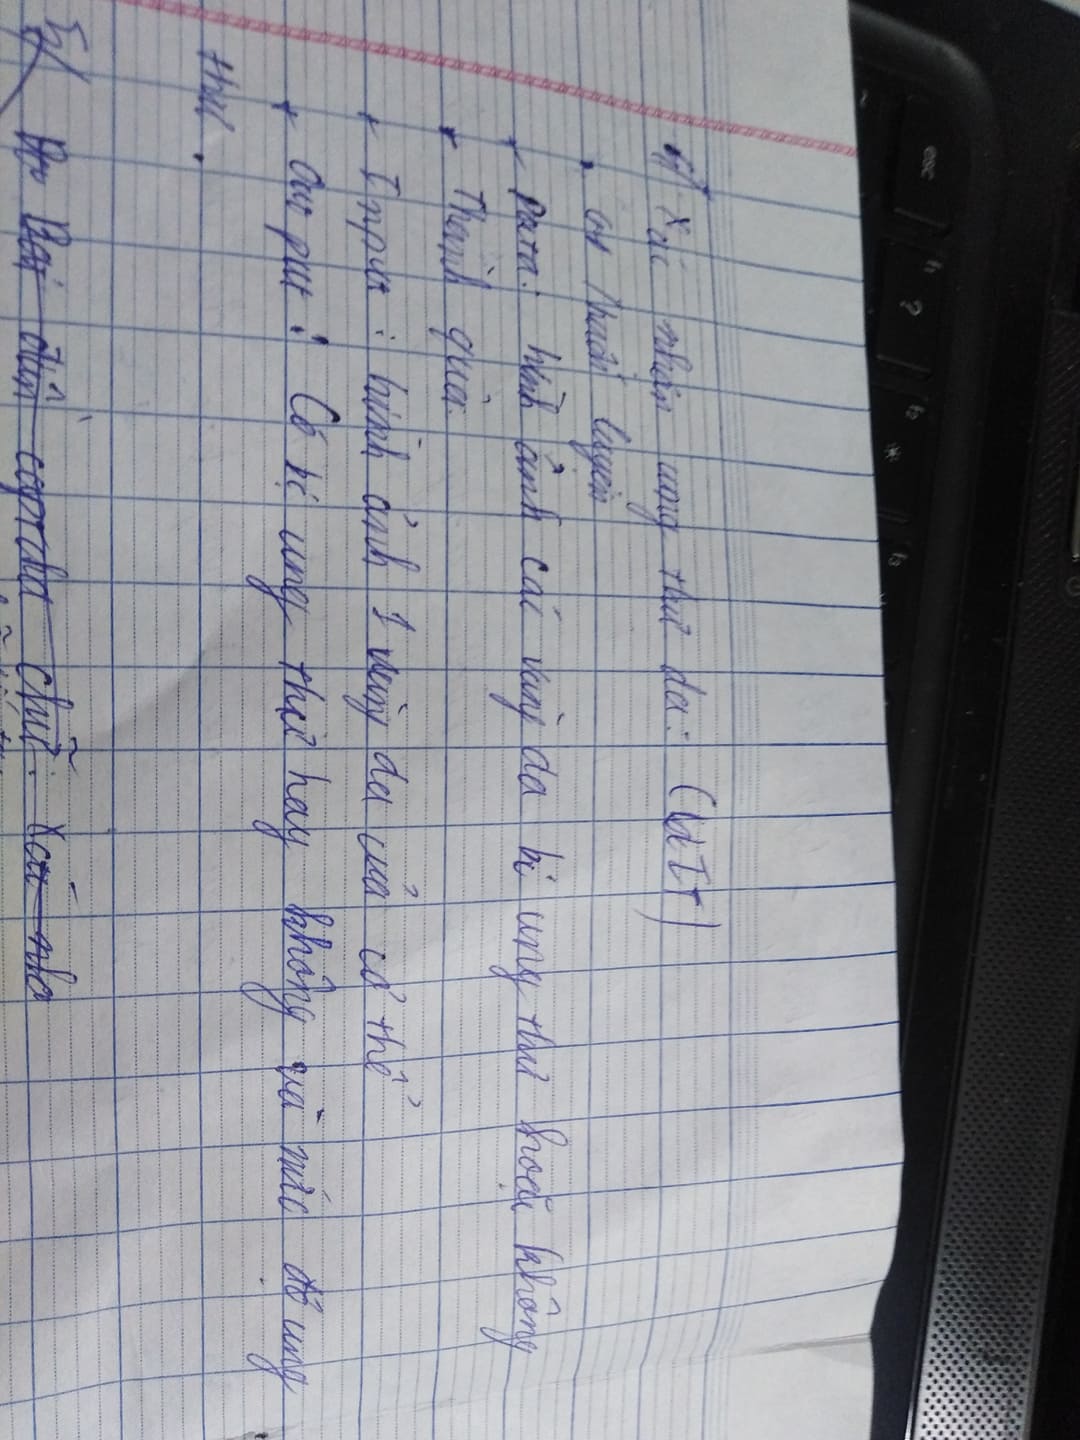 esc f1 ? f2 f3
4/ Xác nhận ung thư da: (UIT)
. Huấn luyện
+ Data: hình ảnh các vùng da bị ung thư hoặc không
+ Thành quả:
+ Input: hình ảnh 1 vùng da của cơ thể
+ Output: Có bị ung thư hay không và mức độ ung
thư.
5/ Bài điền captcha chữ: Xác nhậ